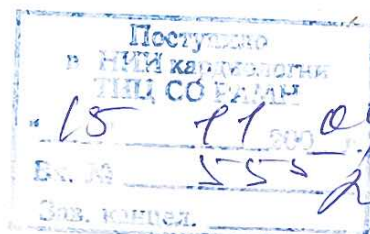 Поступило
в НИИ кардиологии
ТНЦ СО РАМН
" 15 11 200
Вх. № 555
Зав. канцел.